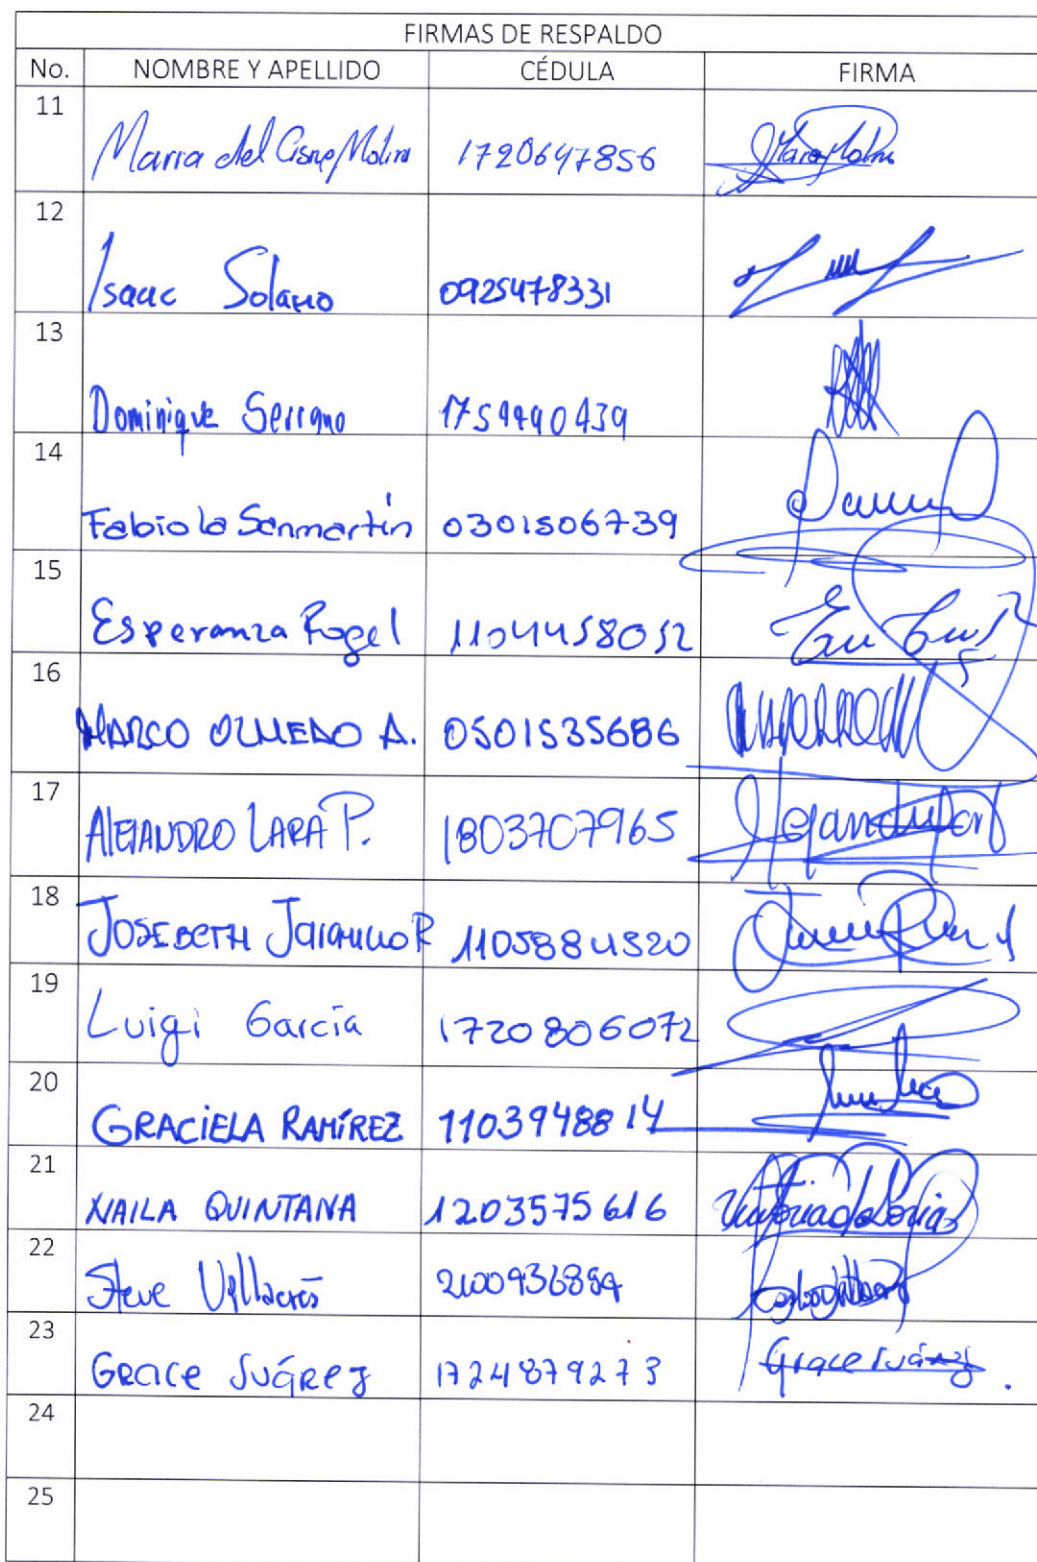 FIRMAS DE RESPALDO
No. NOMBRE Y APELLIDO CÉDULA FIRMA
11 Maria del Cisne Molina 1720647856
12 Isaac Solano 0925478331
13 Dominique Serrano
14 Fabiola Sanmartín 0301506739
15 Esperanza Rogel 1104458052
16 MARCO OLMEDO A. 0501535686
17 ALEJANDRO LARA P. 1803707965
18 JOSEBETH Jaramillo R 1105884520
19 Luigi García 1720806072
20 GRACIELA RAMÍREZ 1103948814
21 NAILA QUINTANA 1203575616
22 Steve Villacrés
23 Grace Suárez 1724879273 Grace Suárez.
24
25